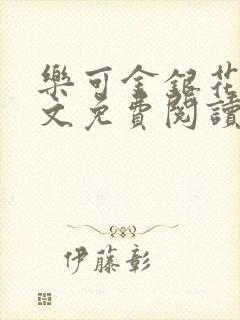 樂可金銀花
文免費閱讀
伊藤彰